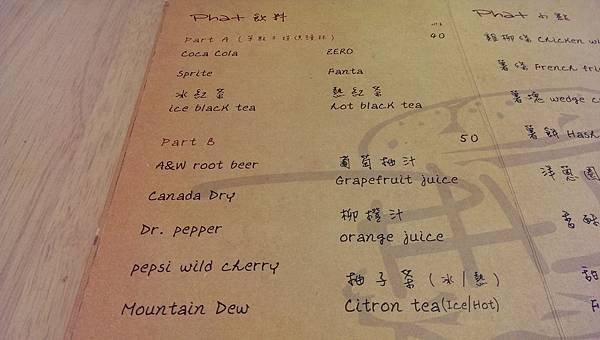 Phat 飲料
Part A (單點不提供續杯) 40
Coca Cola ZERO
Sprite Fanta
冰紅茶 熱紅茶
ice black tea hot black tea
Part B 50
A&W root beer 葡萄柚汁
Grapefruit juice
Canada Dry
Dr. pepper 柳橙汁
orange juice
pepsi wild cherry 柚子茶(冰/熱)
Mountain Dew Citron tea(Ice/Hot)
Phat 小點
雞柳條 Chicken
薯條 French
薯塊 wedge
薯餅 Hash
洋蔥圈